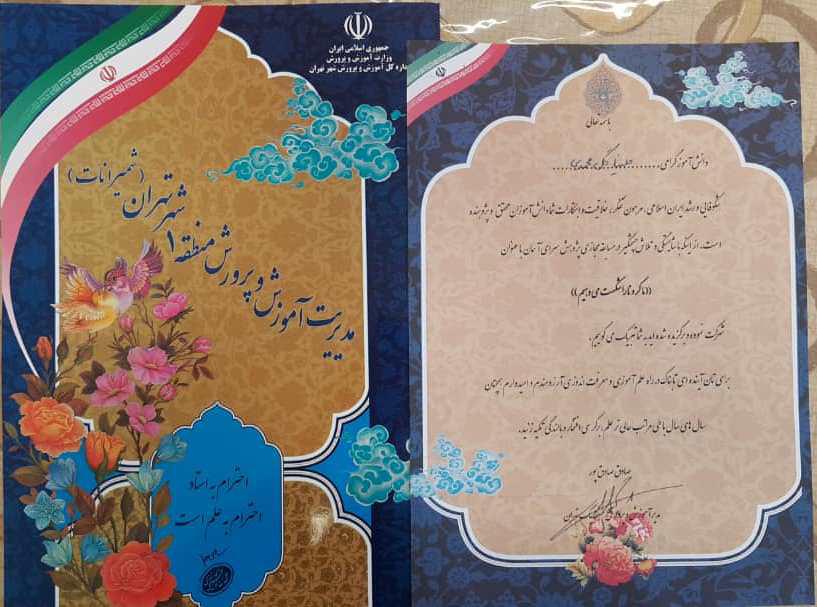 جمهوری اسلامی ایران
وزارت آموزش و پرورش
اداره کل آموزش و پرورش شهر تهران
مدیریت آموزش و پرورش منطقه ۱ شهر تهران (شمیرانات)
احترام به استاد
احترام به علم است
باسمه تعالی
دانش آموز گرامی
شکوفایی و رشد ایران اسلامی، مرهون تفکر، خلاقیت و ابتکارات شما دانش آموزان محقق و پژوهنده
است. از اینکه با شایستگی و تلاش چشمگیر در مسابقه مجازی پژوهش سرای آسمان با عنوان
((ما کرونا را شکست می دهیم))
شرکت نموده و برگزیده شده اید به شما تبریک می گوییم.
برای تان آینده ای تابناک در راه علم آموزی و معرفت اندوزی آرزومندم و امیدوارم همچنان
سال های سال با طی مراتب عالی تر علم، بر کرسی افتخار و بالندگی تکیه زنید.
صادق صادق پور